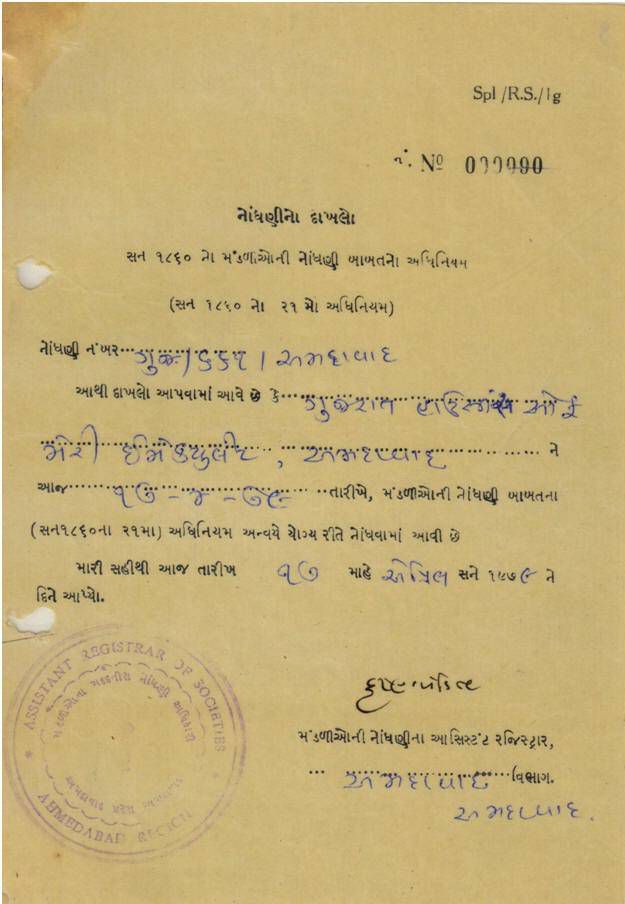 Spl /R.S./1g
નં. Nº 000090
નોંધણીનો દાખલો
સન ૧૮૬૦ નો મંડળીઓની નોંધણી બાબતનો અધિનિયમ
(સન ૧૮૬૦ નો ૨૧ મો અધિનિયમ)
નોંધણી નંબર ગુજ/૬૬૧/અમદાવાદ
આથી દાખલો આપવામાં આવે છે કે ગુજરાત હાઉસીસ ઓફ
મેરી ઈમેક્યુલેટ, અમદાવાદ ને
આજ ૧૭-૪-૭૯ તારીખે, મંડળીઓની નોંધણી બાબતના
(સન૧૮૬૦ના ૨૧મા) અધિનિયમ અન્વયે યોગ્ય રીતે નોંધવામાં આવી છે
મારી સહીથી આજ તારીખ ૧૭ માહે એપ્રિલ સને ૧૯૭૯ ને
દિને આપ્યો.
મંડળીઓની નોંધણીના આસિસ્ટંટ રજિસ્ટ્રાર,
અમદાવાદ વિભાગ.
અમદાવાદ.
ASSISTANT REGISTRAR OF SOCIETIES
AHMEDABAD REGION